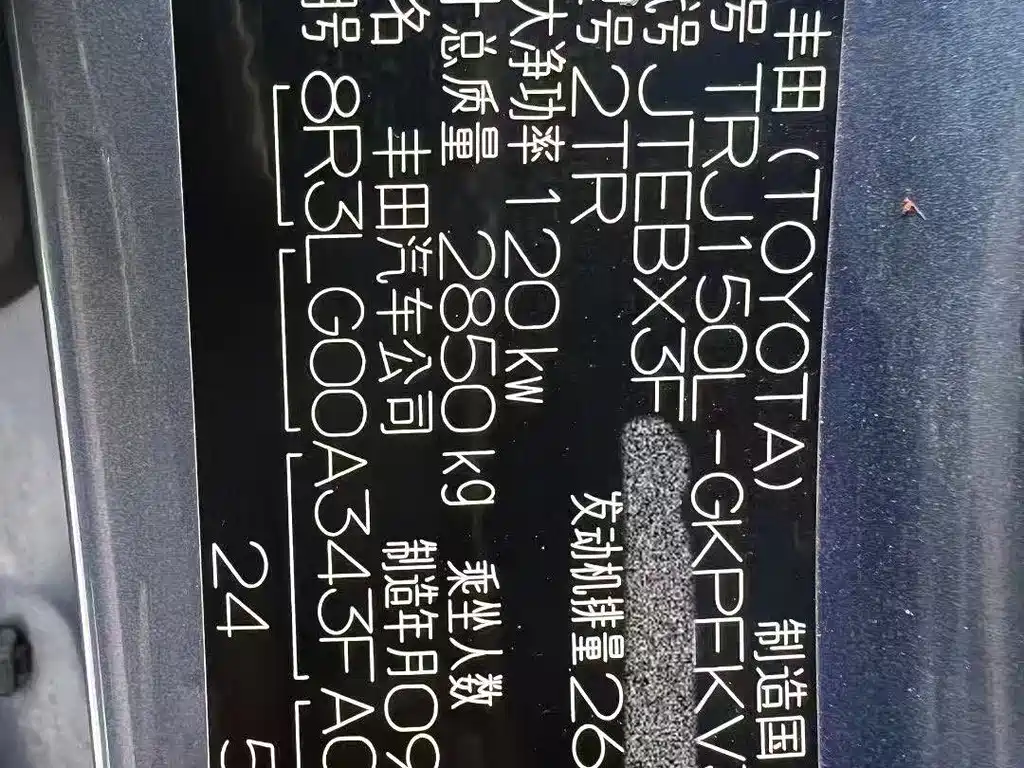 丰田(TOYOTA) 制造国
号 TRJ150L-GKPFKV
号 JTEBX3F
号 2TR 发动机排量 26
大净功率 120kW
总质量 2850kg 乘坐人数
名 丰田汽车公司 制造年月 09
号 8R3 LG00 A343F A0
24 5